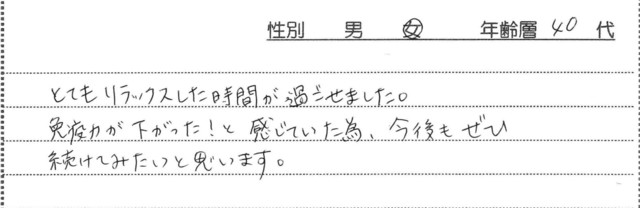 性別 男 女 年齢層 40 代
とてもリラックスした時間が過ごせました。
免疫力が下がった!と感じていた為、今後もぜひ
続けてみたいと思います。